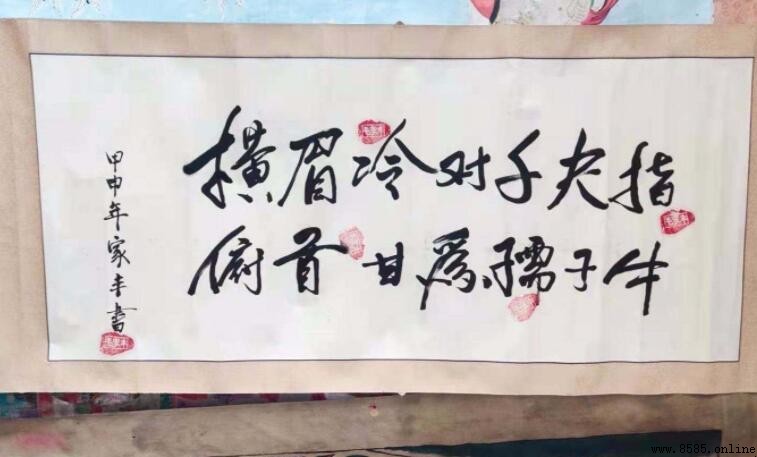 横眉冷对千夫指
俯首甘為孺子牛
甲申年家丰書
www.8585.online